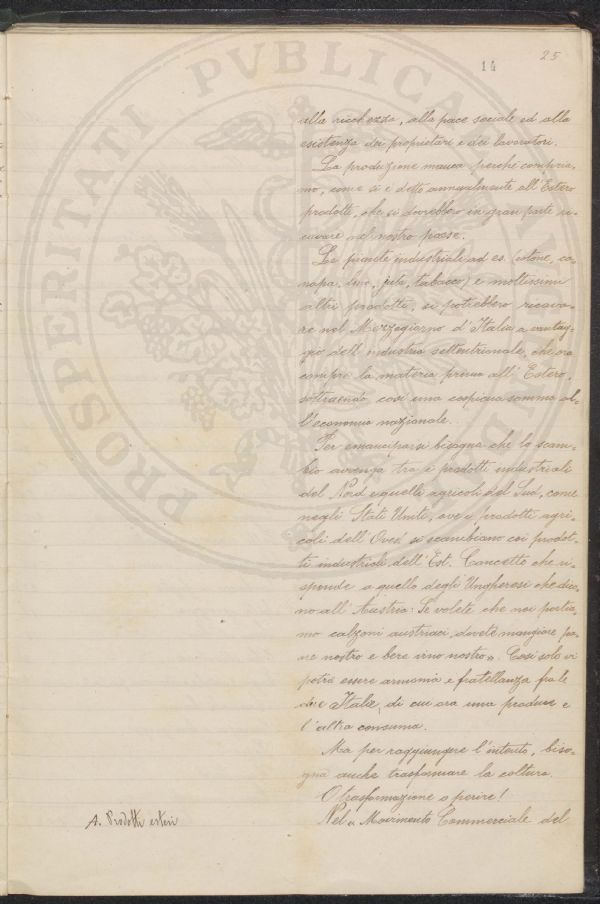 25
14
alla ricchezza, alla pace sociale ed alla
esistenza dei proprietari e dei lavoratori.
La produzione manca perchè compria-
mo, come si è detto annualmente all'Estero
prodotti, che si dovrebbero in gran parte ri-
cavare nel nostro paese.
Le piante industriali ad es. (cotone, ca-
napa, lino, juta, tabacco) e moltissimi
altri prodotti, si potrebbero ricava-
re nel Mezzogiorno d'Italia a vantag-
gio dell'industria settentrionale, che ora
compra la materia prima all'Estero,
sottraendo così una cospicua somma al-
l'economia nazionale.
Per emanciparsi bisogna che lo scam-
bio avvenga tra i prodotti industriali
del Nord e quelli agricoli del Sud, come
negli Stati Uniti, ove i prodotti agri-
coli dell'Ovest si scambiano coi prodot-
ti industriali dell'Est. Concetto che ri-
sponde a quello degli Ungheresi che dico-
no all'Austria: Se volete che noi portia-
mo calzoni austriaci, dovete mangiare pa-
ne nostro e bere vino nostro». Così solo vi
potrà essere armonia e fratellanza fra le
due Italie, di cui ora una produce e
l'altra consuma.
Ma per raggiungere l'intento, biso-
gna anche trasformare la coltura.
O trasformazione o perire!
Nel « Movimento Commerciale del
A. Prodotti esteri
PROSPERITATI PVBLICAE